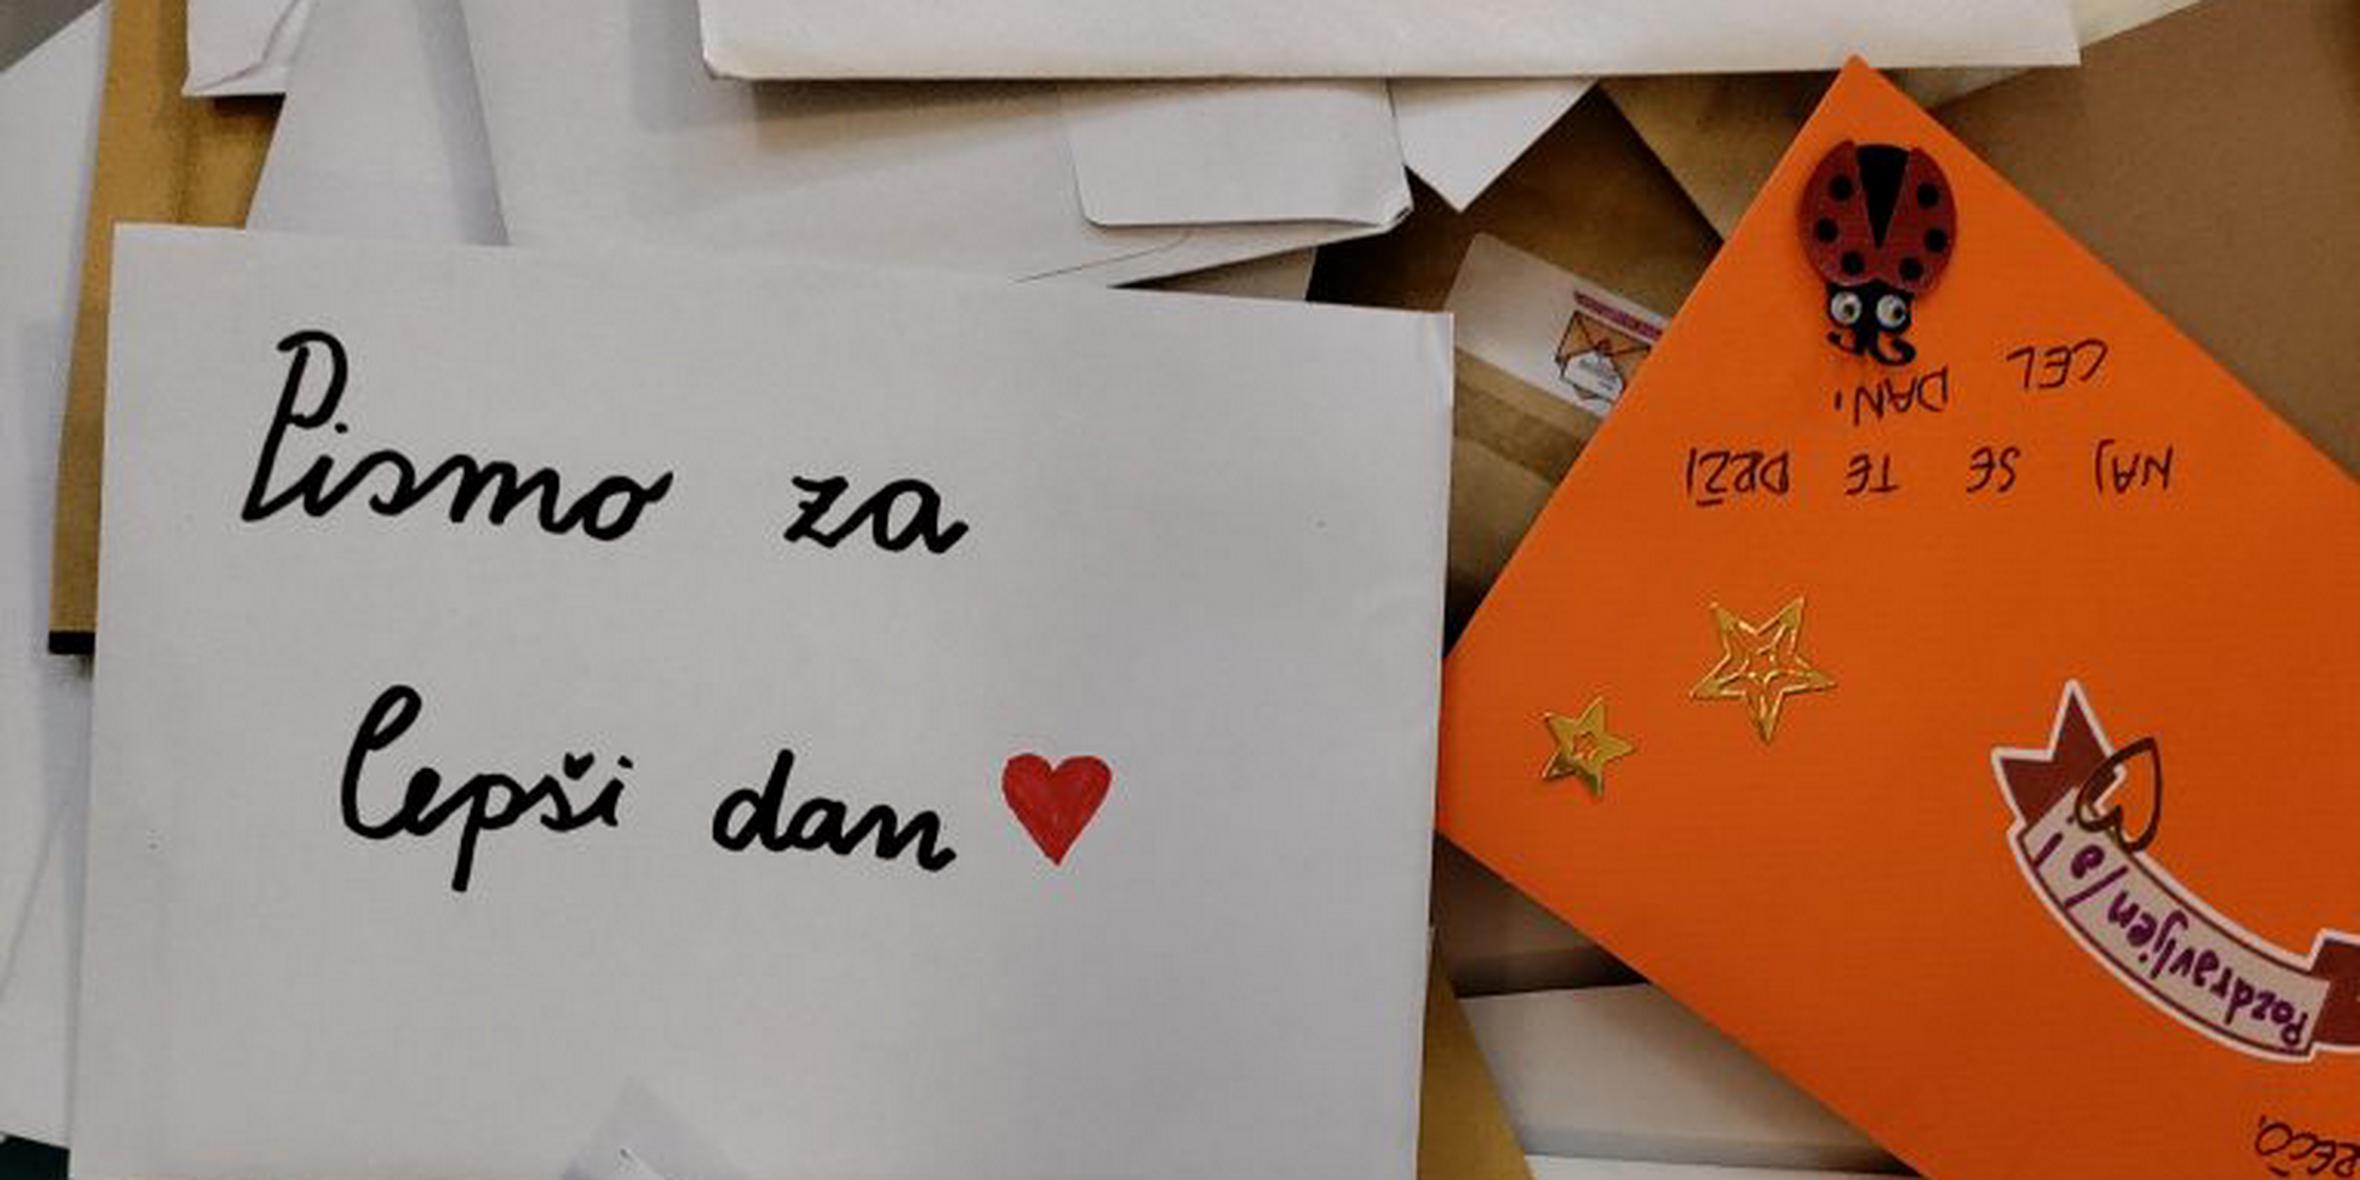 Pismo za
lepši dan
Pozdravljen/a!
NAJ SE TE DRŽI
CEL DAN!